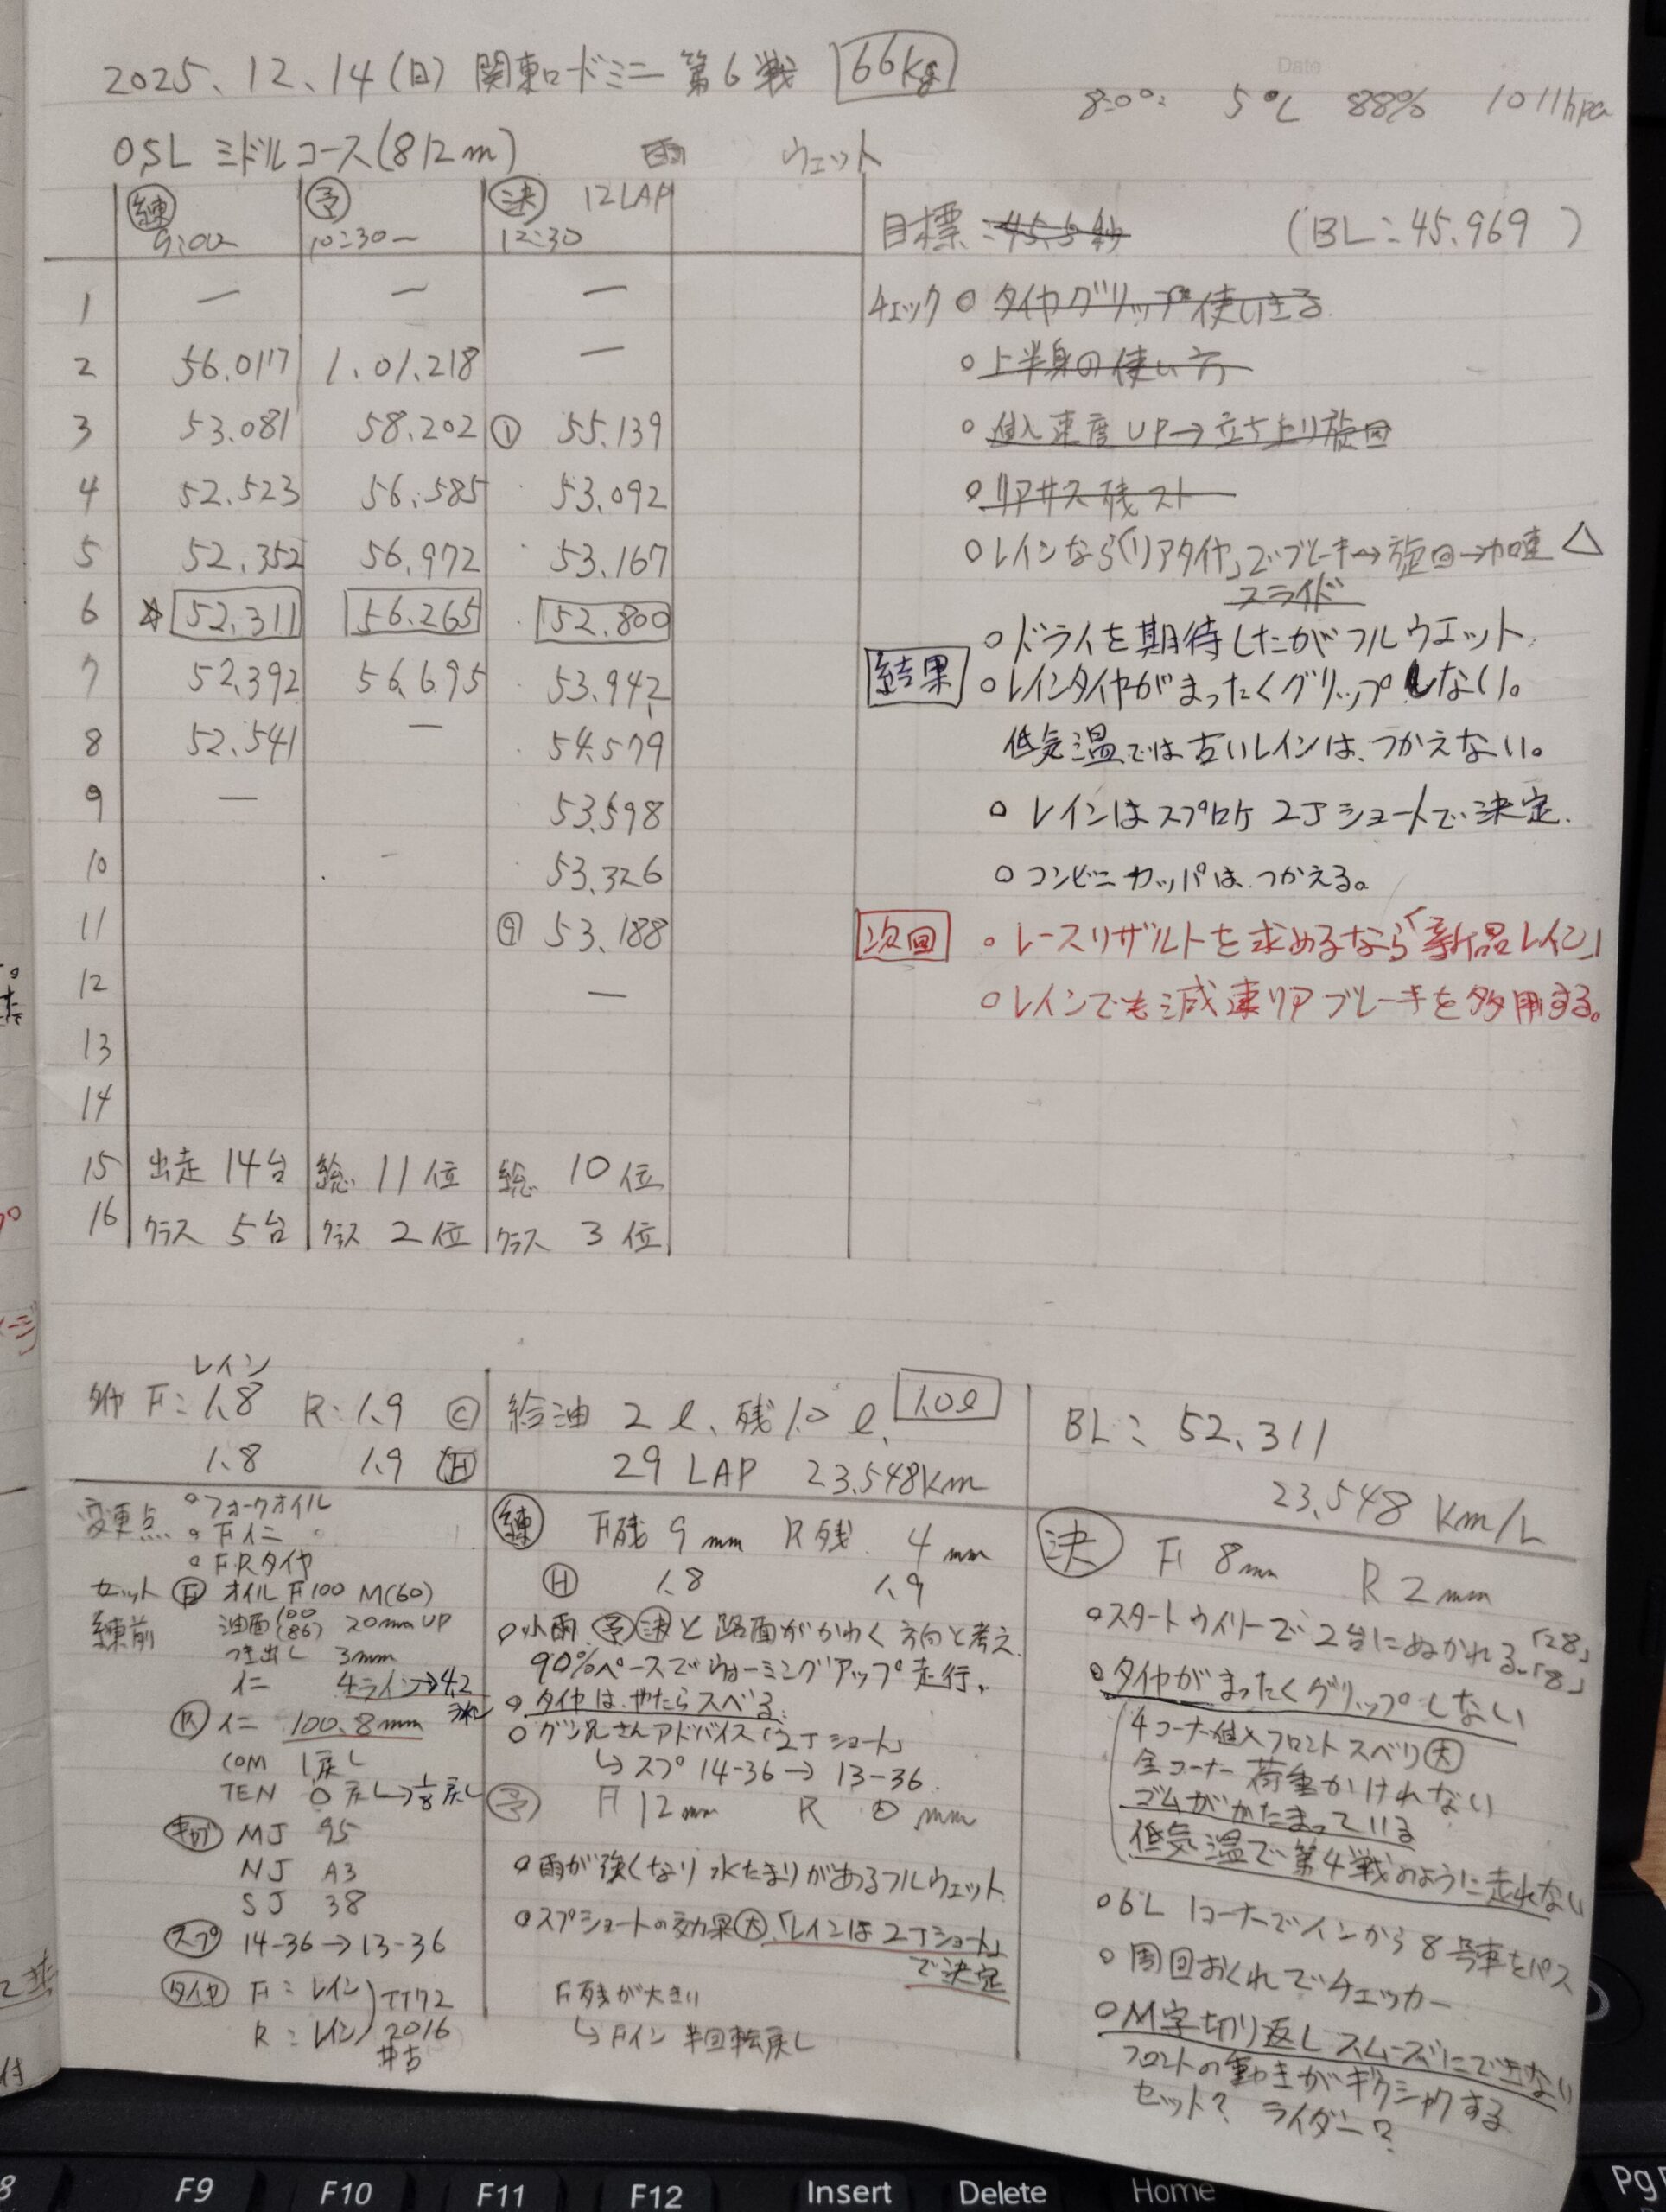 Date
2025.12.14(日) 関東ロードミニ 第6戦 66kg
8:00 5℃ 88% 1011hpa
OSL ミドルコース(812m) 雨 ウェット
練 予 決 12LAP
9:00 10:30〜 12:30
目標:45.5秒 (BL:45.969)
1 — — —
2 56.017 1.01.218 —
3 53.081 58.202 ① 55.139
4 52.523 56.585 53.092
5 52.352 56.972 53.167
6 ☆ 52.311 56.265 52.800
7 52.392 56.695 53.942
8 52.541 — 54.579
9 — 53.598
10 53.326
11 ⑨ 53.188
12 —
13
14
15 出走 14台 総 11位 総 10位
16 クラス 5台 クラス 2位 クラス 3位
チェック ○タイヤグリップ使いきる
○上半身の使い方
○進入速度UP→立ち上り旋回
○リアサス残スト
○レインなら「リアタイヤ」でブレーキ→旋回→加速 △
スライド
結果
○ドライを期待したがフルウエット
○レインタイヤがまったくグリップしない。
低気温では古いレインは、つかえない。
○レインはスプロケ 2Tショートで決定.
○コンビニカッパは、つかえる。
次回
○レースリザルトを求めるなら「新品レイン」
○レインでも減速リアブレーキを多用する。
レイン
タイヤ F:1.8 R:1.9 Ⓒ
1.8 1.9 Ⓗ
給油 2ℓ、残1.0ℓ. 1.0ℓ
29 LAP 23.548km
BL:52.311
23.548 Km/L
変更点 ○フォークオイル
○Fイニ
○F.Rタイヤ
セット Ⓕ オイル F100 M(60)
練前 油面(100 86) 20mm UP
つき出し 3mm
イニ 4ライン→4.2
ライン
Ⓡ イニ 100.8mm
COM 1戻し
TEN 0戻し→1/8戻し
キャブ MJ 95
NJ A3
SJ 38
スプ 14-36→13-36
タイヤ F:レイン
R:レイン
TT72
2016
中古
練 F残 9mm R残 4mm
Ⓗ 1.8 1.9
○小雨、予決と路面がかわく方向と考え
90%ペースでウォーミングアップ走行.
○タイヤは、やたらスベる.
○グン兄さんアドバイス「2Tショート」
↳スプ14-36→13-36.
予 F 12mm R 0mm
○雨が強くなり水たまりがあるフルウェット
○スプショートの効果大「レインは2Tショート」
で決定
F残が大きい
↳Fイン 半回転戻し
決 F 8mm R 2mm
○スタートウイリーで2台にぬかれる.「28」「8」
○タイヤがまったくグリップしない
4コーナー進入フロントスベリ大
全コーナー荷重かけれない
ゴムがかたまっている
低気温で第4戦のように走れない
○6L 1コーナーでインから8号車をパス
○周回おくれでチェッカー
○M字切り返しスムーズにできない
フロントの動きがギクシャクする
セット? ライダー?
F9 F10 F11 F12 Insert Delete Home